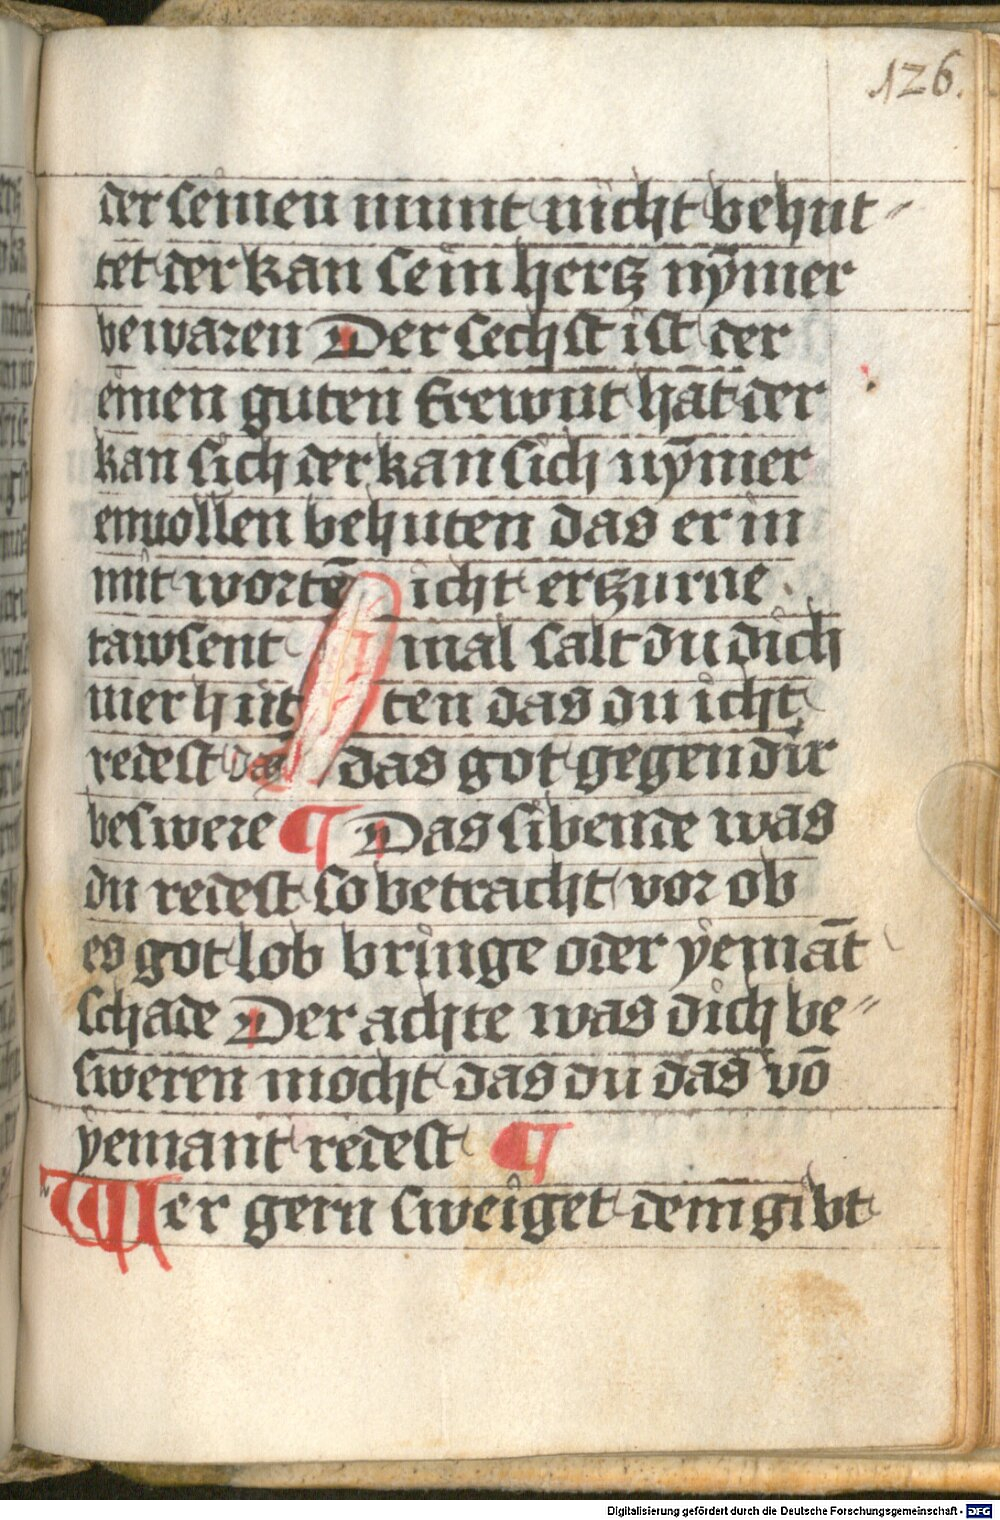 126.
der seinen munt nicht behut-
tet der kan sein hertz nȳmer
bewaren Der sechst ist der
einen guten frewnt hat der
kan sich der kan sich nȳmer
envollen behuten das er in
mit wortē icht erzurne .
tawsent mal salt du dich
mer hüt ten das du icht
redest das das got gegen dir
beswere ¶ Das sibende was
du redest so betracht vor ob
es got lob bringe oder yemāt
schade Der achte was dich be-
sweren mocht das du das vō
yemant redest ¶
Wer gern sweiget dem gibt
Digitalisierung gefördert durch die Deutsche Forschungsgemeinschaft - DFG